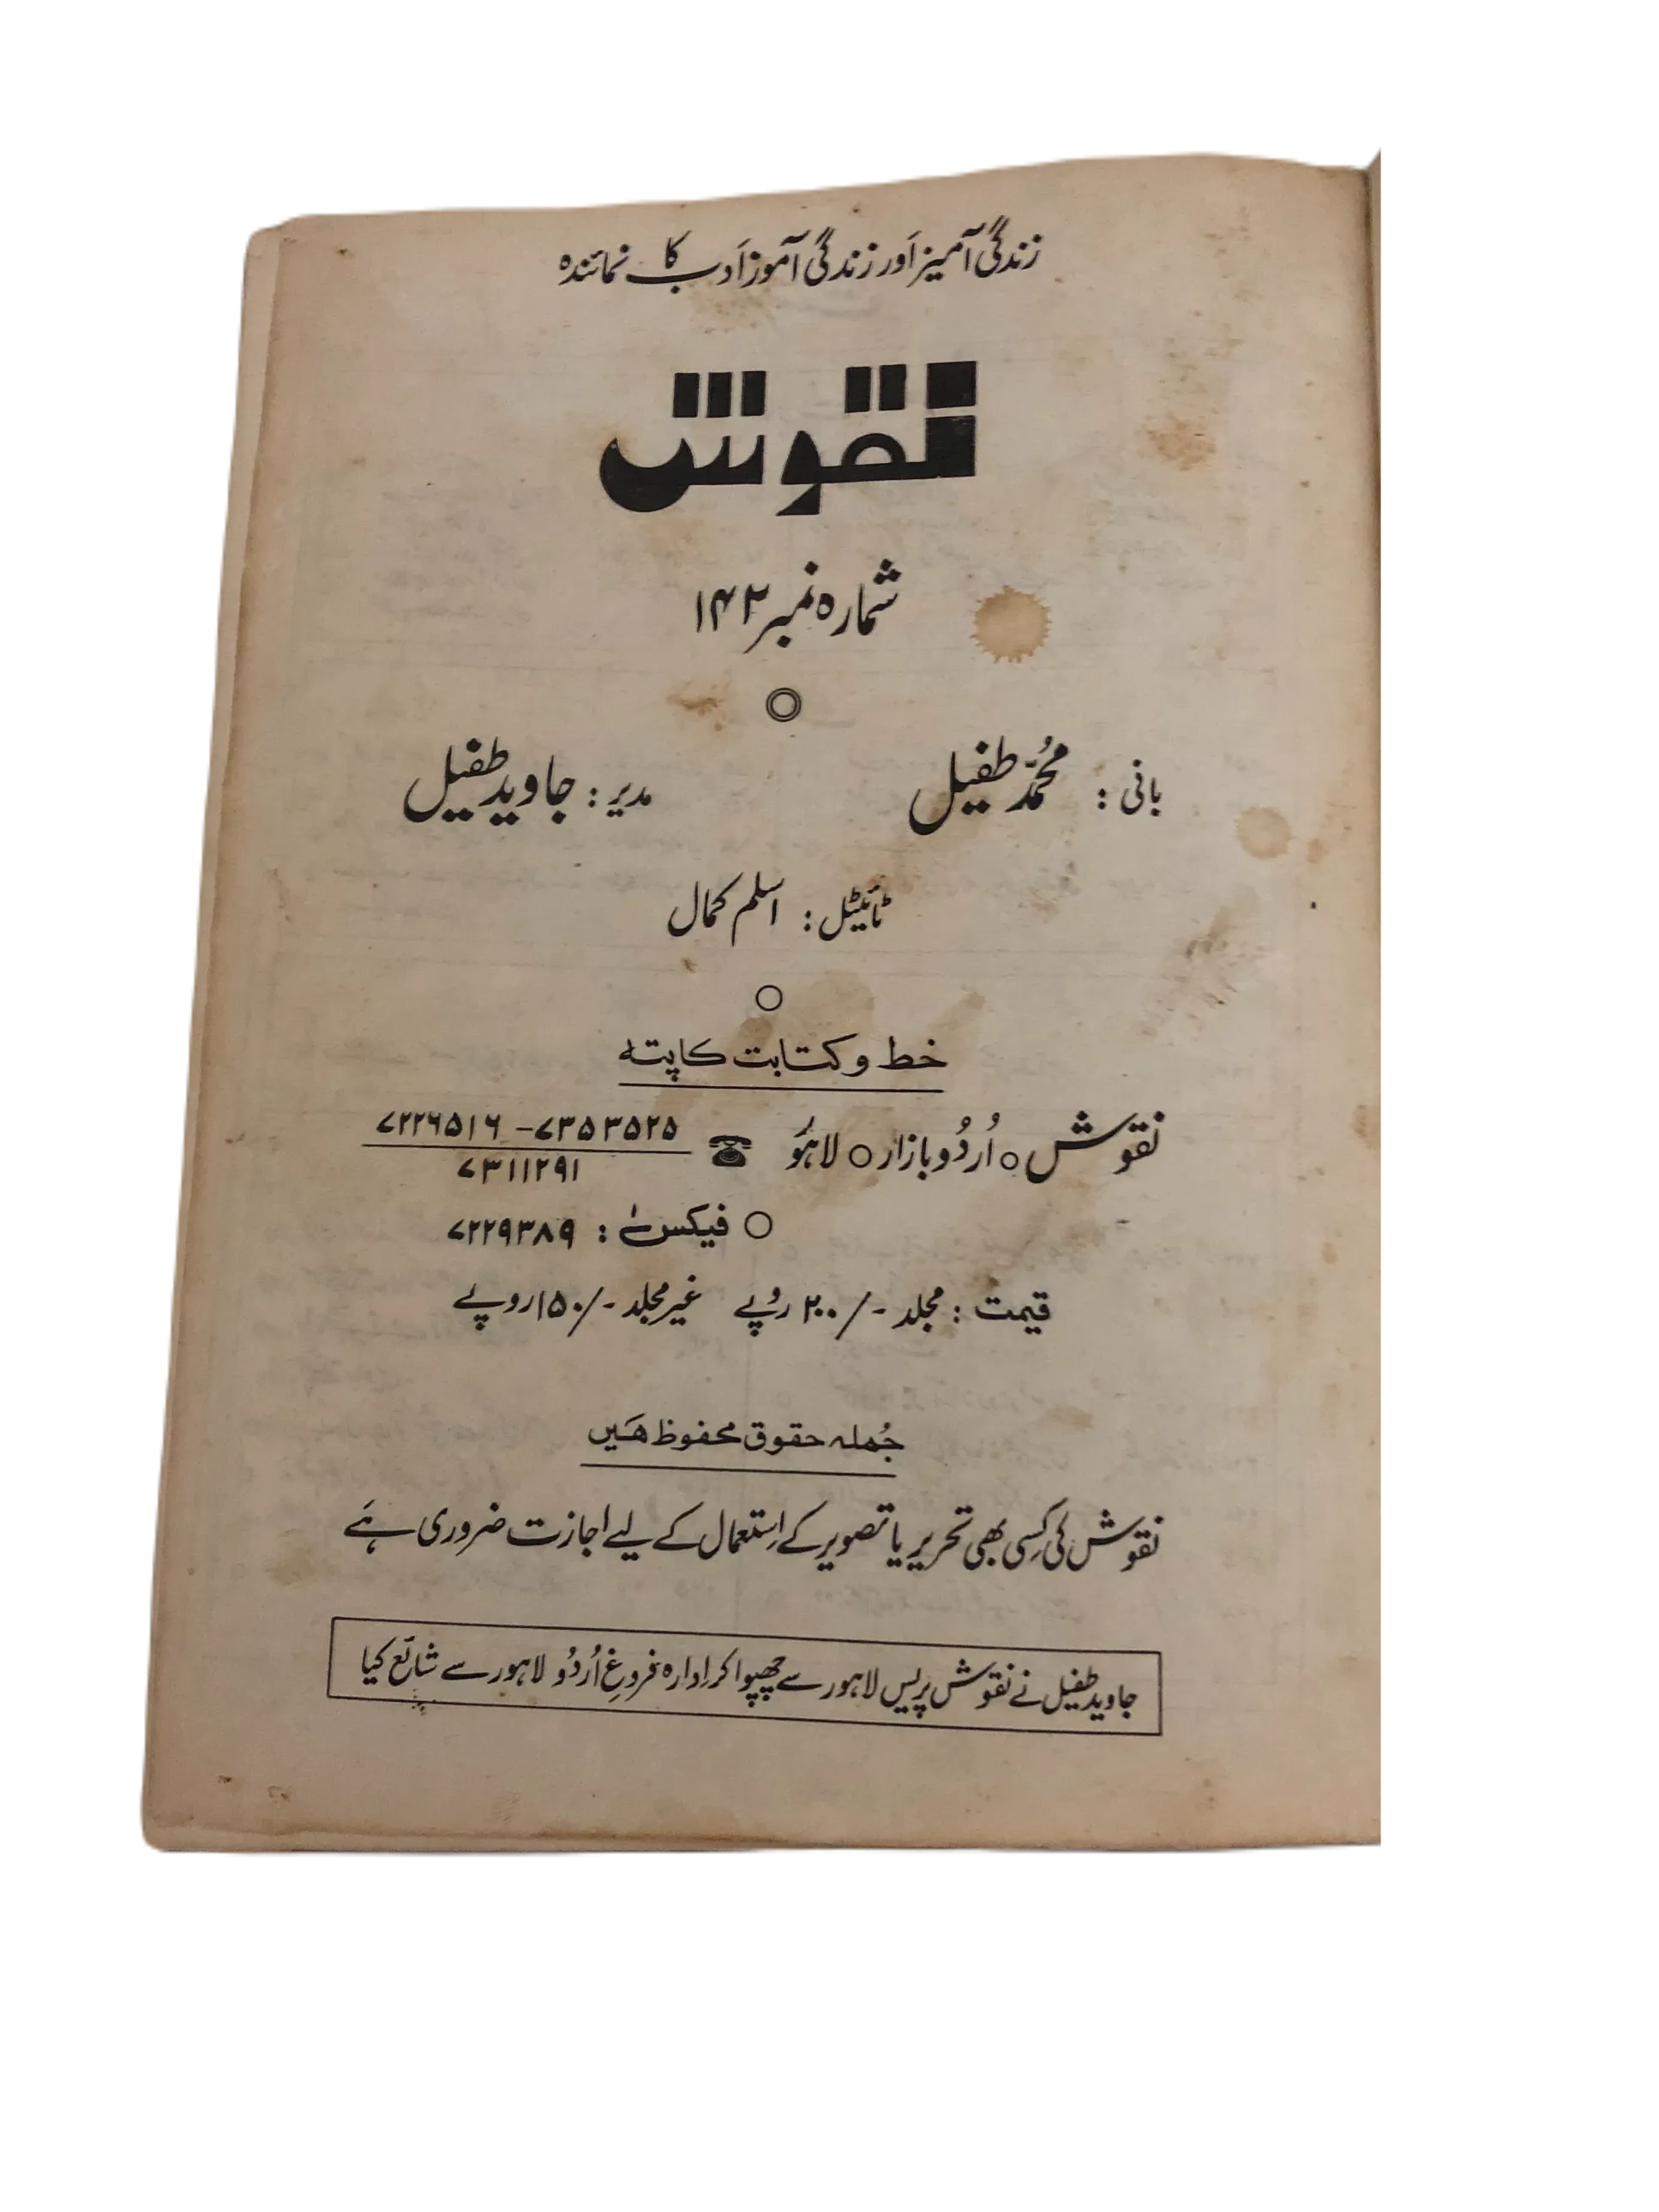 زندگی آمیز اَور زندگی آموز اَدب کا نمائندہ
نقوش
شمارہ نمبر ۱۴۲
بانی : محُمّد طفیل مدیر : جاوید طفیل
ٹائیٹل : اسلم کمال
خط و کتابت کا پتہ
نقوش ○ اُردُو بازار ○ لاہَور ☎ ۷۳۵۳۵۲۵ – ۷۲۲۶۵۱۶
۷۳۱۱۲۹۱
○ فیکس : ۷۲۲۹۳۸۹
قیمت : مجلد -/۲۰۰ رُوپے غیر مجلد -/۱۵۰ روپے
جُملہ حقوق محفوظ ہَیں
نقوش کی کِسی بھی تحریر یا تصویر کے اِستعمال کے لیے اجازت ضروری ہَے
جاوید طفیل نے نقوش پریس لاہور سے چھپوا کر اِدارہ فروغِ اُردُو لاہور سے شائع کیا